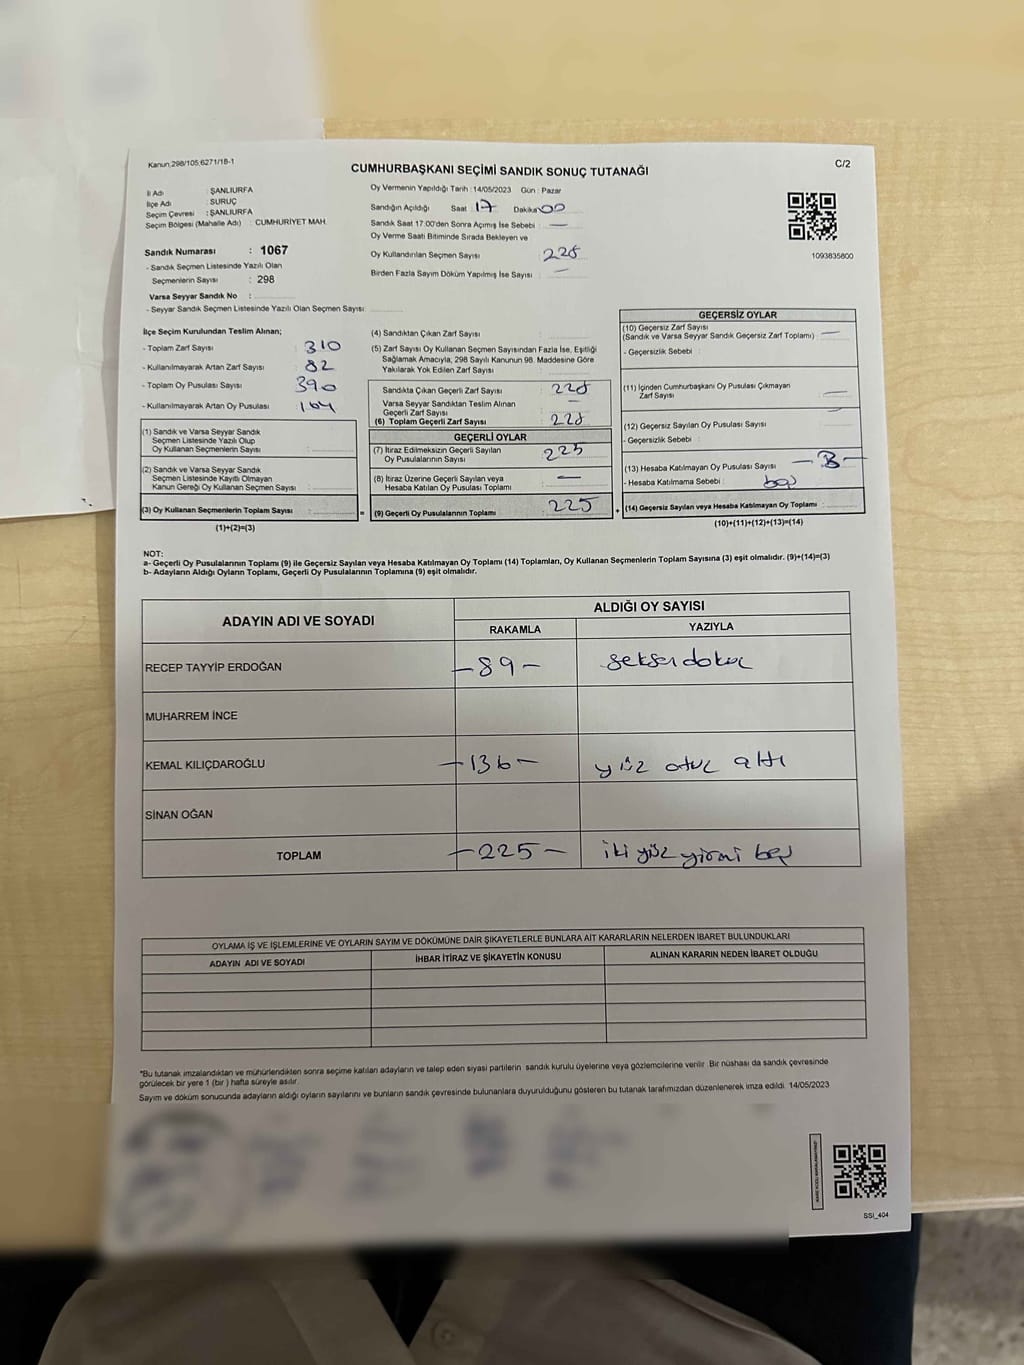 Kanun:298/105:6271/18-1
C/2
CUMHURBAŞKANI SEÇİMİ SANDIK SONUÇ TUTANAĞI
İl Adı : ŞANLIURFA
İlçe Adı : SURUÇ
Seçim Çevresi : ŞANLIURFA
Seçim Bölgesi (Mahalle Adı) : CUMHURİYET MAH.
Sandık Numarası : 1067
- Sandık Seçmen Listesinde Yazılı Olan
Seçmenlerin Sayısı : 298
Varsa Seyyar Sandık No :
- Seyyar Sandık Seçmen Listesinde Yazılı Olan Seçmen Sayısı:
Oy Vermenin Yapıldığı Tarih :14/05/2023 Gün : Pazar
Sandığın Açıldığı Saat : 17 Dakika 00
Sandık Saat 17:00'den Sonra Açılmış İse Sebebi : —
Oy Verme Saati Bitiminde Sırada Bekleyen ve
Oy Kullandırılan Seçmen Sayısı
Birden Fazla Sayım Döküm Yapılmış İse Sayısı : —
1093835800
İlçe Seçim Kurulundan Teslim Alınan;
- Toplam Zarf Sayısı : 310
- Kullanılmayarak Artan Zarf Sayısı : 82
- Toplam Oy Pusulası Sayısı : 390
- Kullanılmayarak Artan Oy Pusulası : 164
(1) Sandık ve Varsa Seyyar Sandık
Seçmen Listesinde Yazılı Olup
Oy Kullanan Seçmenlerin Sayısı :
(2) Sandık ve Varsa Seyyar Sandık
Seçmen Listesinde Kayıtlı Olmayan
Kanun Gereği Oy Kullanan Seçmen Sayısı :
(3) Oy Kullanan Seçmenlerin Toplam Sayısı :
(1)+(2)=(3)
(4) Sandıktan Çıkan Zarf Sayısı :
(5) Zarf Sayısı Oy Kullanan Seçmen Sayısından Fazla İse, Eşitliği
Sağlamak Amacıyla, 298 Sayılı Kanunun 98. Maddesine Göre
Yakılarak Yok Edilen Zarf Sayısı :
Sandıkta Çıkan Geçerli Zarf Sayısı : 228
Varsa Seyyar Sandıktan Teslim Alınan
Geçerli Zarf Sayısı : —
(6) Toplam Geçerli Zarf Sayısı : 228
GEÇERLİ OYLAR
(7) İtiraz Edilmeksizin Geçerli Sayılan
Oy Pusulalarının Sayısı : 225
(8) İtiraz Üzerine Geçerli Sayılan veya
Hesaba Katılan Oy Pusulası Toplamı : —
= (9) Geçerli Oy Pusulalarının Toplamı : 225
GEÇERSİZ OYLAR
(10) Geçersiz Zarf Sayısı
(Sandık ve Varsa Seyyar Sandık Geçersiz Zarf Toplamı) : —
- Geçersizlik Sebebi :
(11) İçinden Cumhurbaşkanı Oy Pusulası Çıkmayan
Zarf Sayısı : —
(12) Geçersiz Sayılan Oy Pusulası Sayısı : —
- Geçersizlik Sebebi :
(13) Hesaba Katılmayan Oy Pusulası Sayısı
- Hesaba Katılmama Sebebi : boş
+ (14) Geçersiz Sayılan veya Hesaba Katılmayan Oy Toplamı :
(10)+(11)+(12)+(13)=(14)
NOT:
a- Geçerli Oy Pusulalarının Toplamı (9) ile Geçersiz Sayılan veya Hesaba Katılmayan Oy Toplamı (14) Toplamları, Oy Kullanan Seçmenlerin Toplam Sayısına (3) eşit olmalıdır. (9)+(14)=(3)
b- Adayların Aldığı Oyların Toplamı, Geçerli Oy Pusulalarının Toplamına (9) eşit olmalıdır.
ADAYIN ADI VE SOYADI
ALDIĞI OY SAYISI
RAKAMLA YAZIYLA
RECEP TAYYİP ERDOĞAN – 89 – seksen dokuz
MUHARREM İNCE
KEMAL KILIÇDAROĞLU – 136 – yüz otuz altı
SİNAN OĞAN
TOPLAM – 225 – iki yüz yirmi beş
OYLAMA İŞ VE İŞLEMLERİNE VE OYLARIN SAYIM VE DÖKÜMÜNE DAİR ŞİKAYETLERLE BUNLARA AİT KARARLARIN NELERDEN İBARET BULUNDUKLARI
ADAYIN ADI VE SOYADI İHBAR İTİRAZ VE ŞİKAYETİN KONUSU ALINAN KARARIN NEDEN İBARET OLDUĞU
*Bu tutanak imzalandıktan ve mühürlendikten sonra seçime katılan adayların ve talep eden siyasi partilerin sandık kurulu üyelerine veya gözlemcilerine verilir. Bir nüshası da sandık çevresinde
görülecek bir yere 1 (bir) hafta süreyle asılır.
Sayım ve döküm sonucunda adayların aldığı oyların sayılarını ve bunların sandık çevresinde bulunanlara duyurulduğunu gösteren bu tutanak tarafımızdan düzenlenerek imza edildi. 14/05/2023
SSI_404